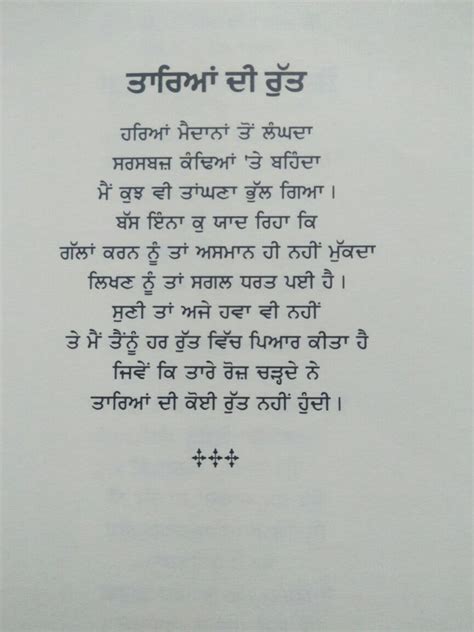 ਤਾਰਿਆਂ ਦੀ ਰੁੱਤ
ਹਰਿਆਂ ਮੈਦਾਨਾਂ ਤੋਂ ਲੰਘਦਾ
ਸਰਸਬਜ਼ ਕੰਢਿਆਂ 'ਤੇ ਬਹਿੰਦਾ
ਮੈਂ ਕੁਝ ਵੀ ਤਾਂਘਣਾ ਭੁੱਲ ਗਿਆ।
ਬੱਸ ਇੰਨਾ ਕੁ ਯਾਦ ਰਿਹਾ ਕਿ
ਗੱਲਾਂ ਕਰਨ ਨੂੰ ਤਾਂ ਅਸਮਾਨ ਹੀ ਨਹੀਂ ਮੁੱਕਦਾ
ਲਿਖਣ ਨੂੰ ਤਾਂ ਸਗਲ ਧਰਤ ਪਈ ਹੈ।
ਸੁਣੀ ਤਾਂ ਅਜੇ ਹਵਾ ਵੀ ਨਹੀਂ
ਤੇ ਮੈਂ ਤੈਂਨੂੰ ਹਰ ਰੁੱਤ ਵਿੱਚ ਪਿਆਰ ਕੀਤਾ ਹੈ
ਜਿਵੇਂ ਕਿ ਤਾਰੇ ਰੋਜ਼ ਚੜ੍ਹਦੇ ਨੇ
ਤਾਰਿਆਂ ਦੀ ਕੋਈ ਰੁੱਤ ਨਹੀਂ ਹੁੰਦੀ।